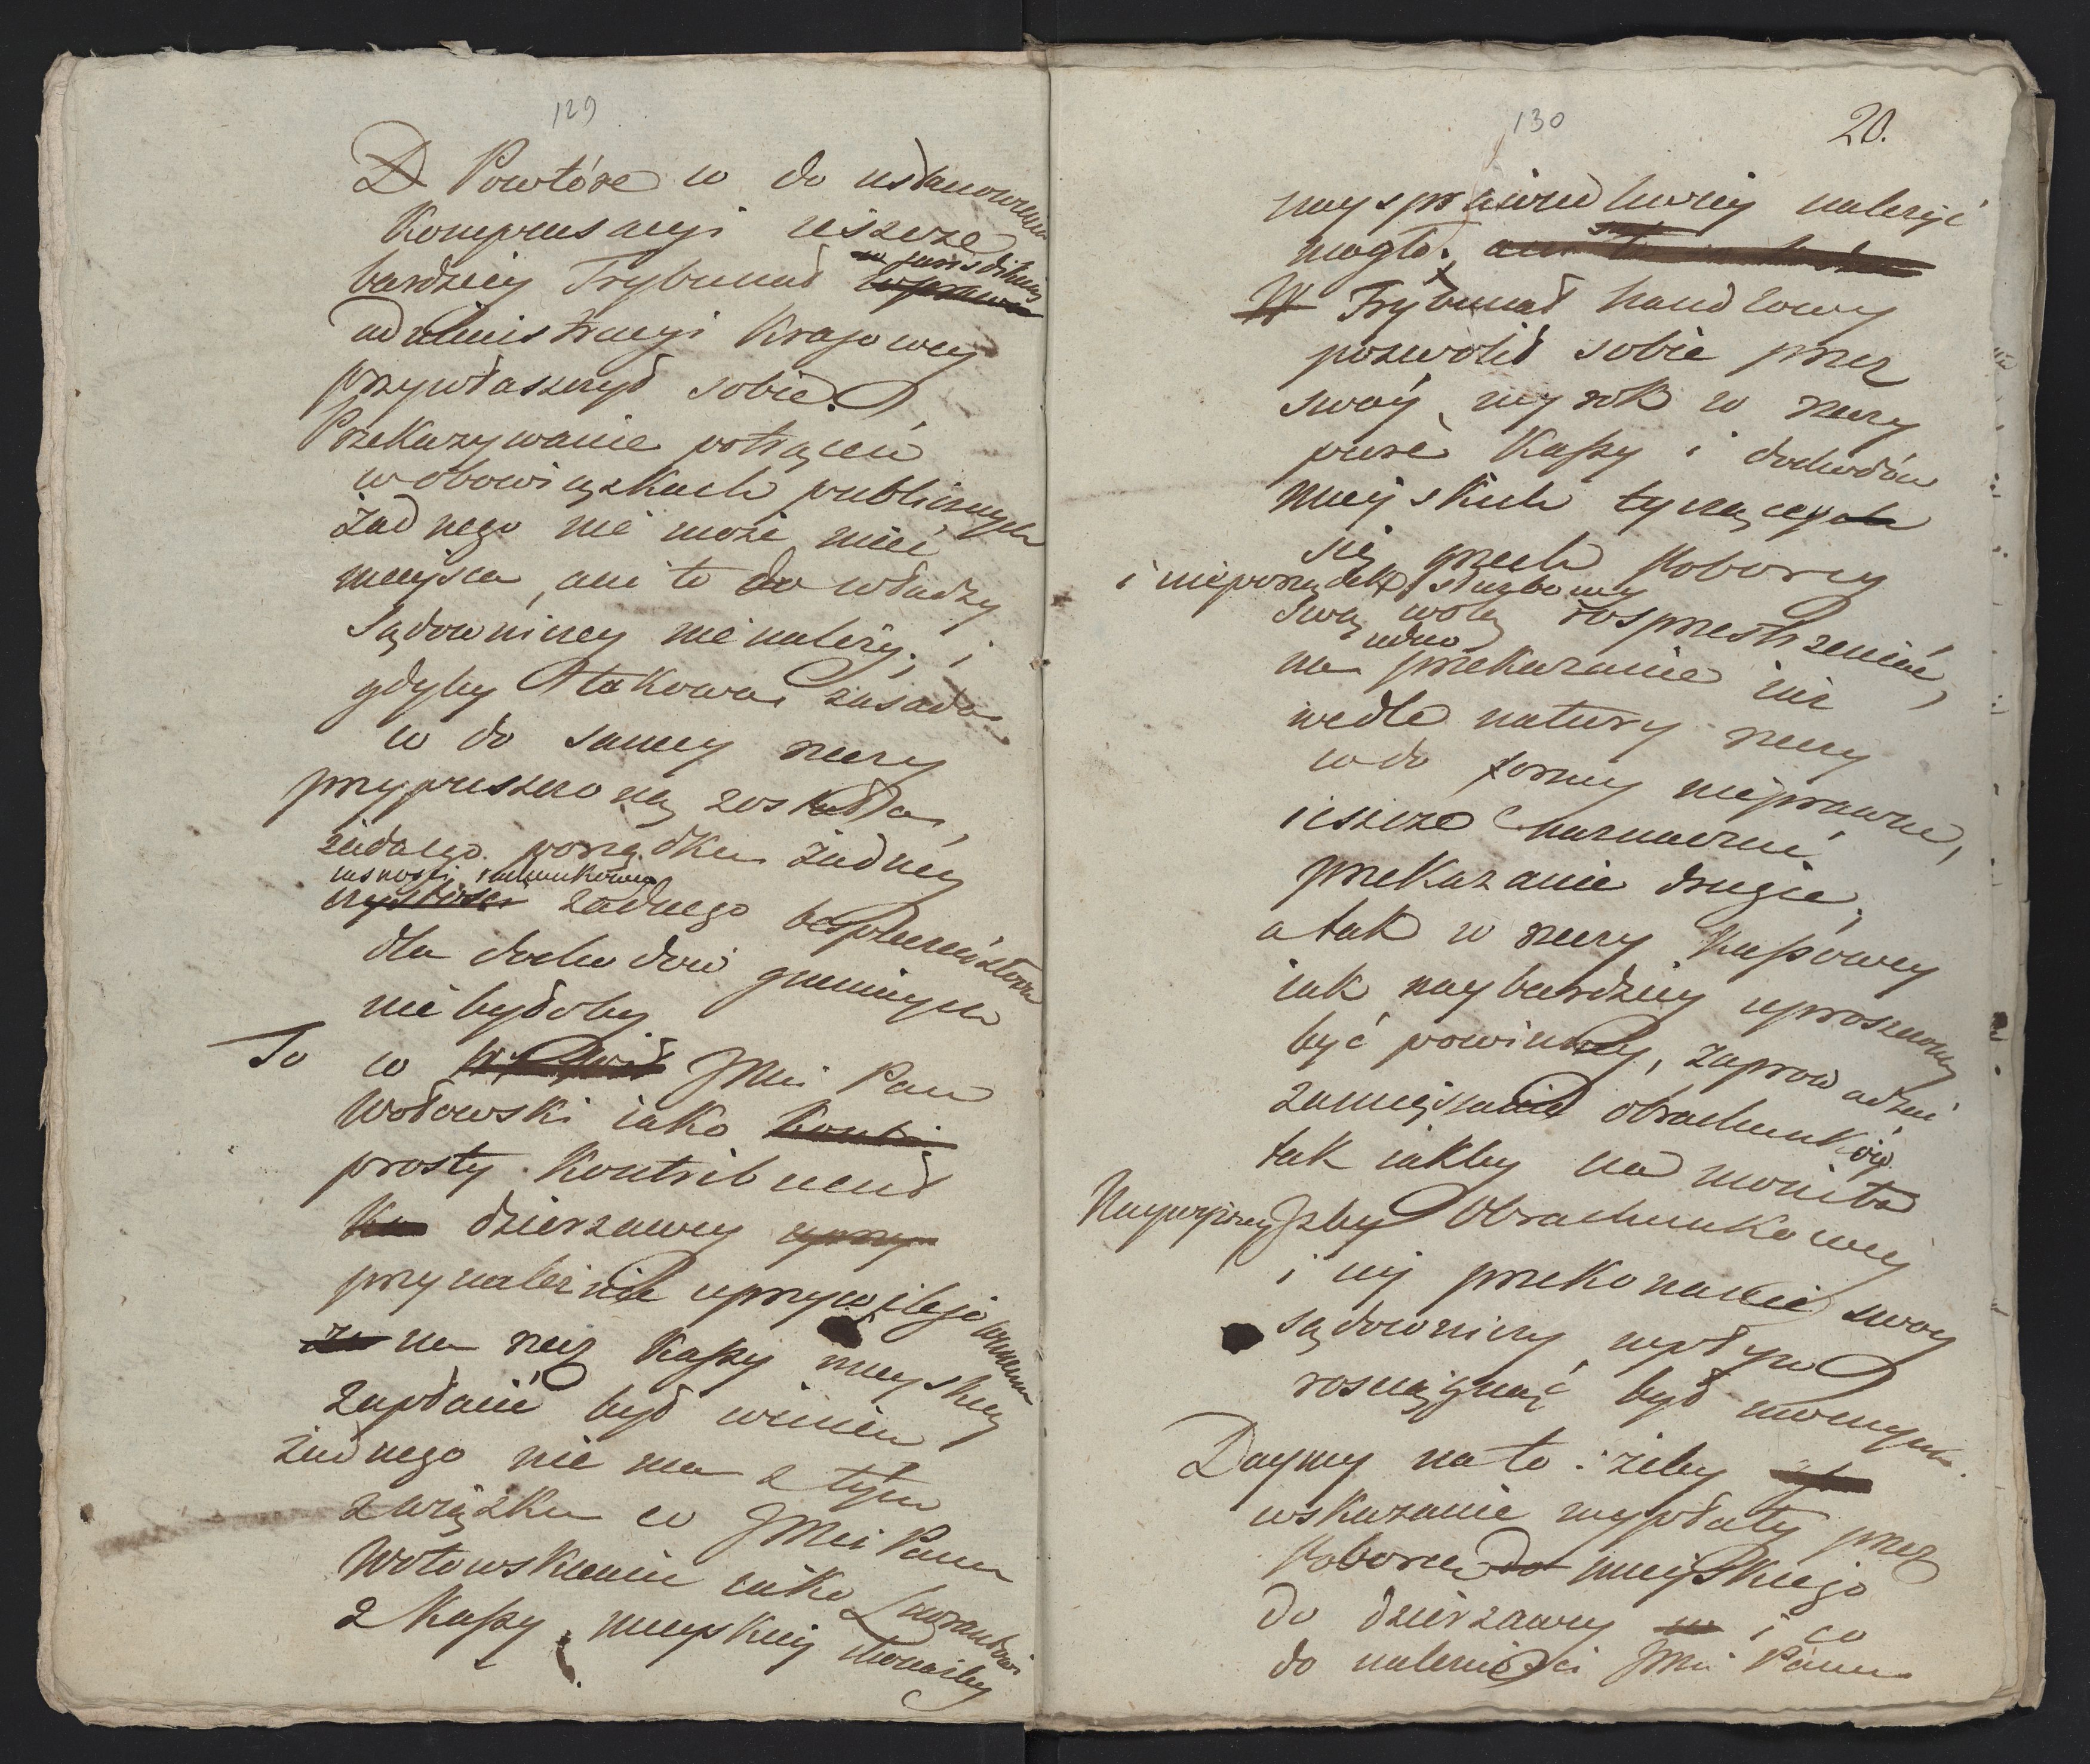 129
Powtóre co do ustanowienia
Kompensacyi ieszcze
bardziey Trybunał w jurisdikcyą
administracyi Kraiowey
przywłaszczył sobie.
Przekazywanie potrąceń
w obowiązkach publicznych
żadnego nie może mieć
mieysca, ani to do władzy
Sądowniczey nie należy; i
gdyby takowa zasada
co do samey rzeczy
przypuszczoną została,
żadnego porządku żadney
iasności rachunkowey
żadnego bespieczeństwa
dla dochodów gminnych
nie byłoby
To co JMci Pan
Wołowski iako
prosty Kontribuent
dzierzawcy
przynależnie uprzywilejowanemu
na rzecz Kassy mieyskiey
zapłacić był winien
żadnego nie ma z tym
związku co JMci Panu
Wołowskiemu iako Liwerantowi
z Kassy mieyskiey
130
20.
sprawiedliwiey należyć
mogło.
Trybunał handlowy
pozwolił sobie przez
swóy wyrok w rzeczy
Kassy i dochodów
mieyskich tyczącey
się grzech Poborcy
i nieporządek służbowy
swą wolą rosprzestrzenić,
na iedno przekazanie iuż
wedle natury rzeczy
co do formy nieprawne,
ieszcze
przekazanie drugie,
a tak w rzeczy Kassowey
iak naybardziey uproszczoney
być powinney, zaprowadzić
zamięszanie obrachunków
tak iakby na monita
Naywyższey Izby Obrachunkowey
i iey przekonanie swoy
sądowniczy wpływ
rosciągnąć był mocnym.
Daymy na to: żeby
wskazanie wypłaty przez
Poborcę mieyskiego
do dzierzawcy i co
do należności JMci Panu